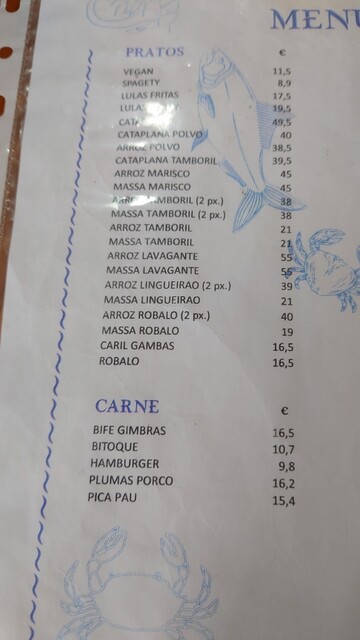 MENU
PRATOS €
VEGAN 11,5
SPAGETY 8,9
LULAS FRITAS 17,5
LULA 19,5
49,5
CATAPLANA POLVO 40
ARROZ POLVO 38,5
CATAPLANA TAMBORIL 39,5
ARROZ MARISCO 45
MASSA MARISCO 45
ARROZ TAMBORIL (2 px.) 38
MASSA TAMBORIL (2 px.) 38
ARROZ TAMBORIL 21
MASSA TAMBORIL 21
ARROZ LAVAGANTE 55
MASSA LAVAGANTE 55
ARROZ LINGUEIRAO (2 px.) 39
MASSA LINGUEIRAO 21
ARROZ ROBALO (2 px.) 40
MASSA ROBALO 19
CARIL GAMBAS 16,5
ROBALO 16,5
CARNE €
BIFE GIMBRAS 16,5
BITOQUE 10,7
HAMBURGER 9,8
PLUMAS PORCO 16,2
PICA PAU 15,4